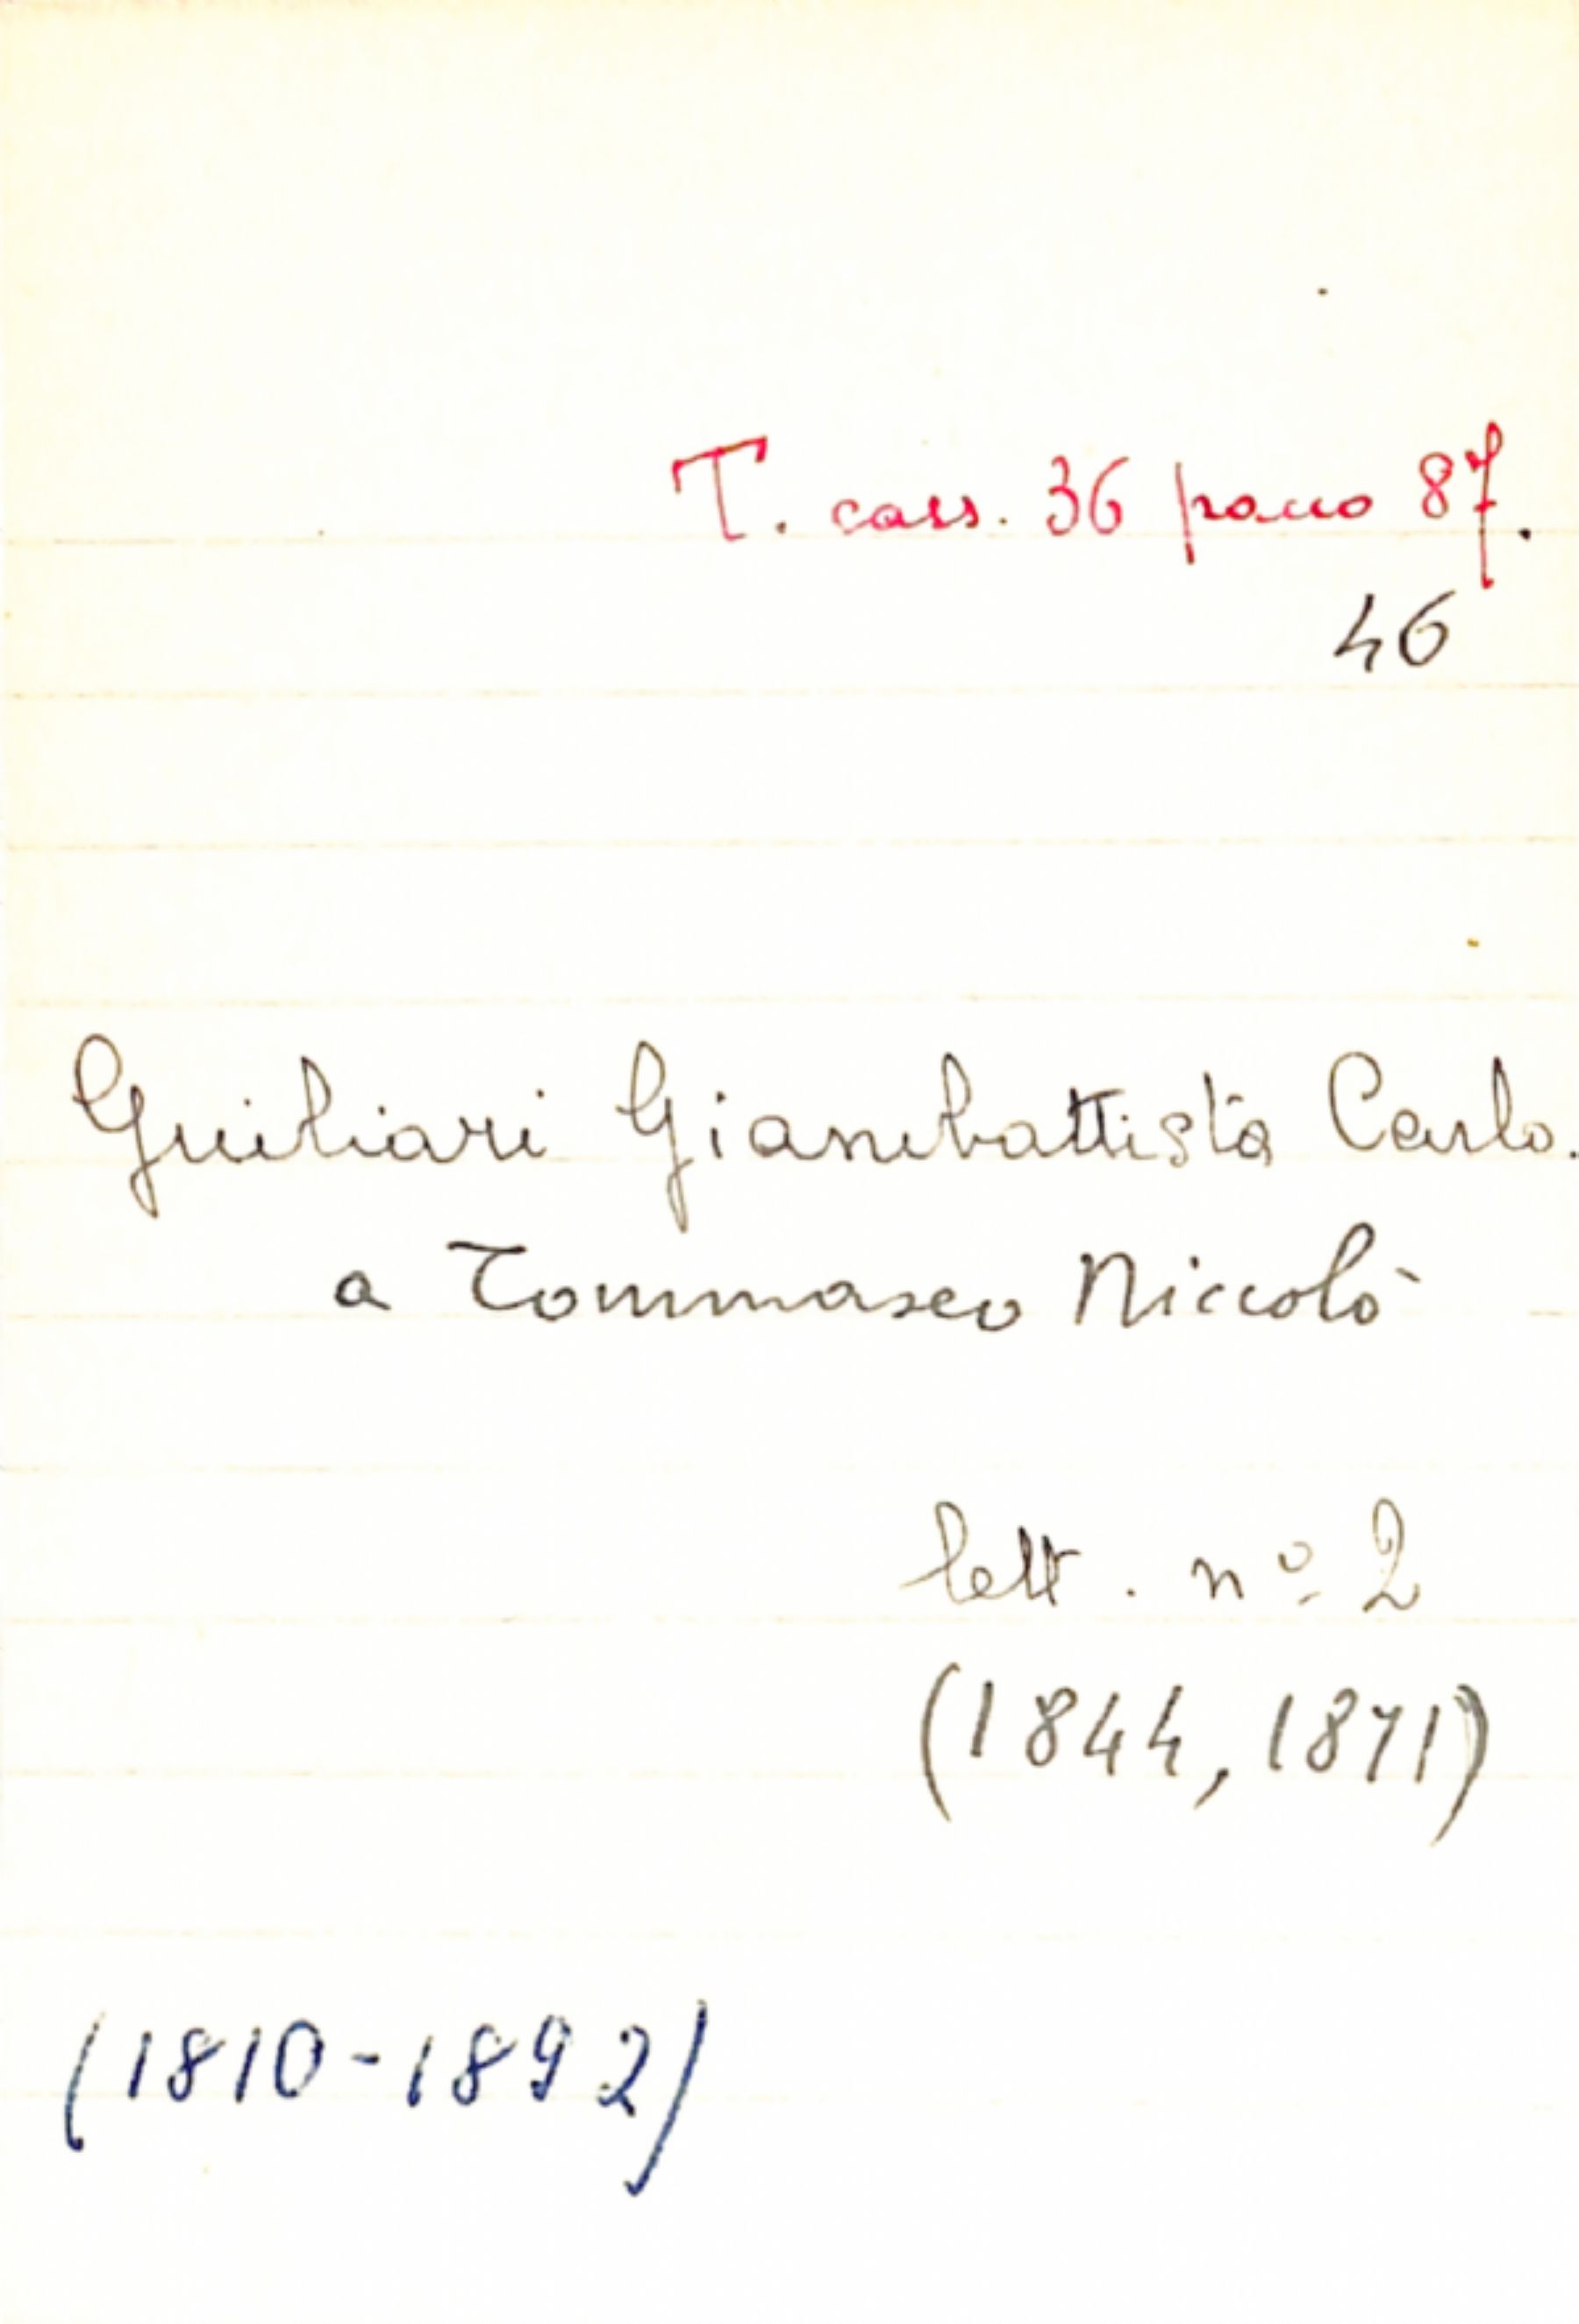 T. cass. 36 pacco 87.
46
Giuliari Giambattista Carlo.
a Tommaseo Niccolò
lett. nº 2
(1844, 1871)
(1810-1892)